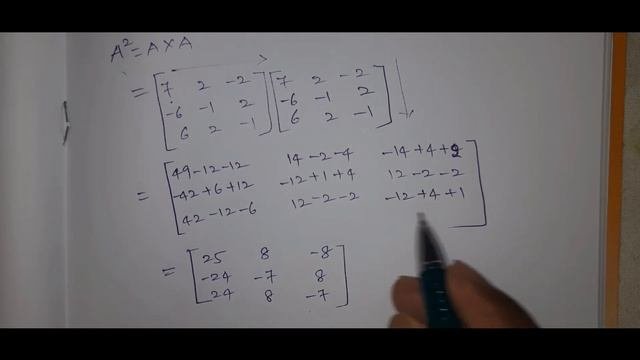 A² = A × A
= [7 2 -2] [7 2 -2]
[-6 -1 2] [-6 -1 2]
[6 2 -1] [6 2 -1]
= [49-12-12 14-2-4 -14+4+2]
[-42+6+12 -12+1+4 12-2-2]
[42-12-6 12-2-2 -12+4+1]
= [25 8 -8]
[-24 -7 8]
[24 8 -7]